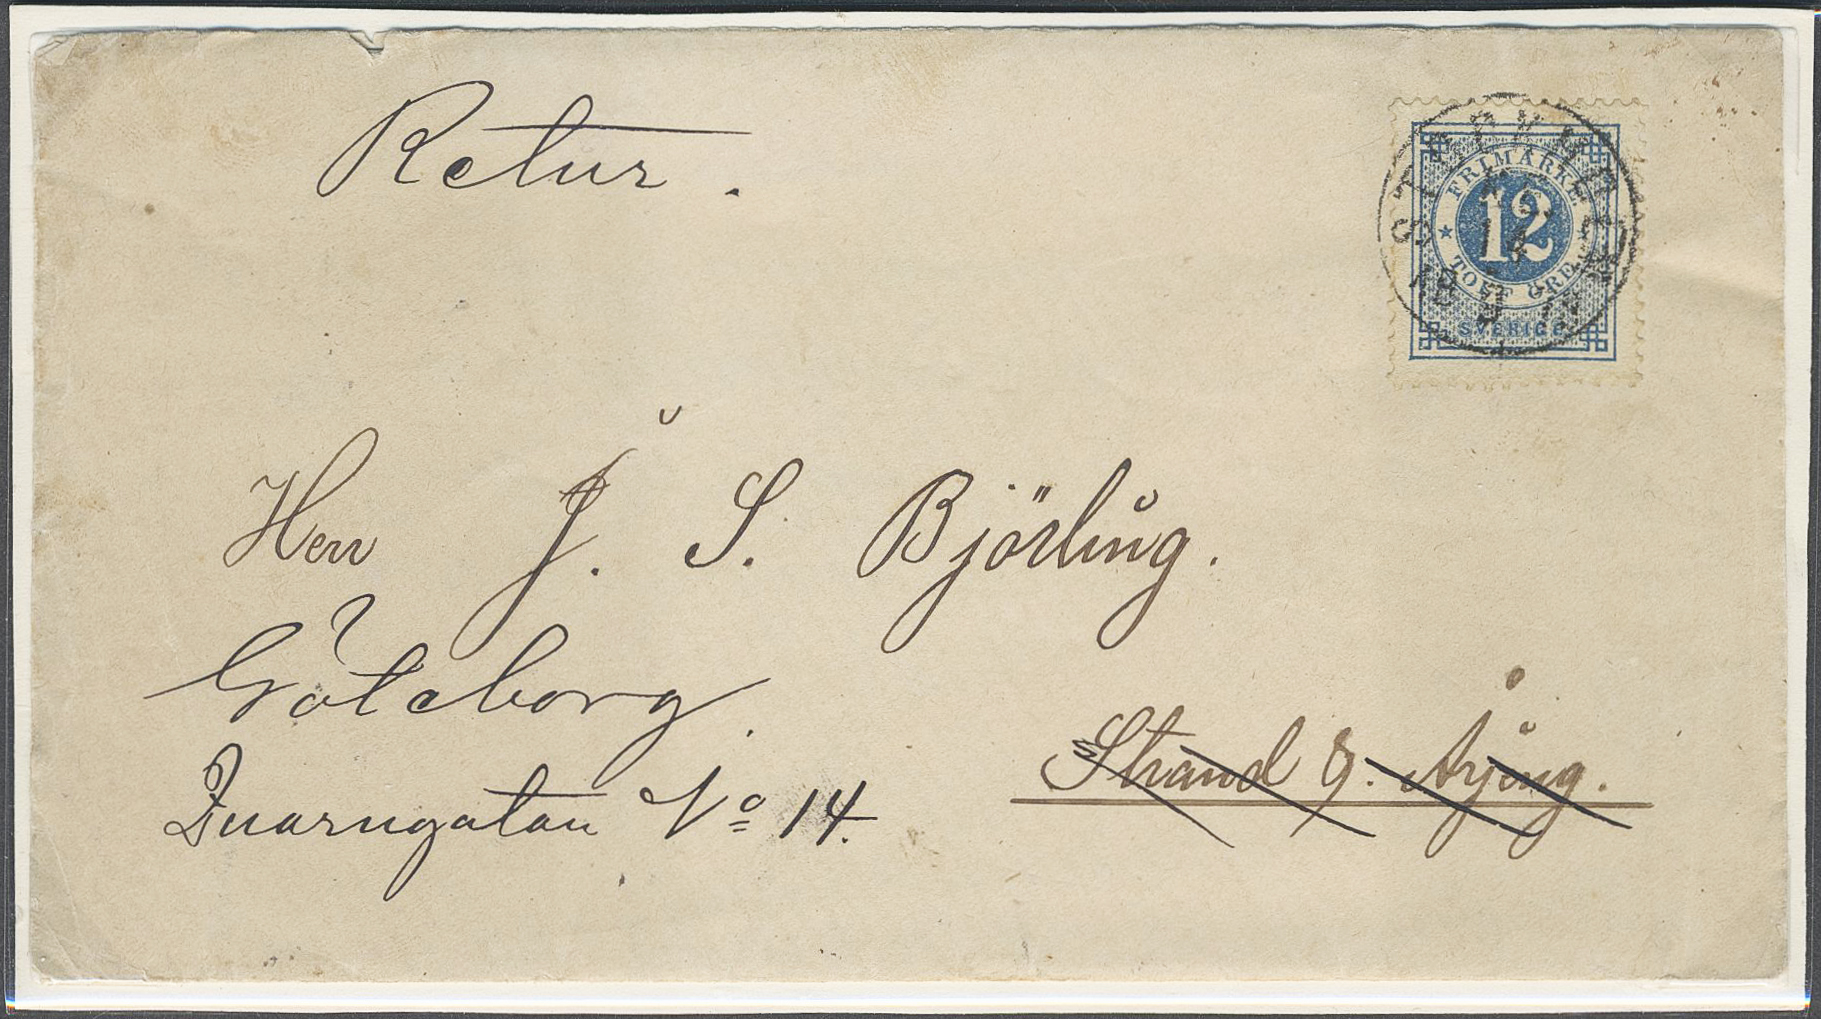 Retur.
FRIMÄRKE
12
TOLF ÖRE
SVERIGE
Herr J. S. Björling.
Göteborg.
Strand g. Årjäng.
No 14.